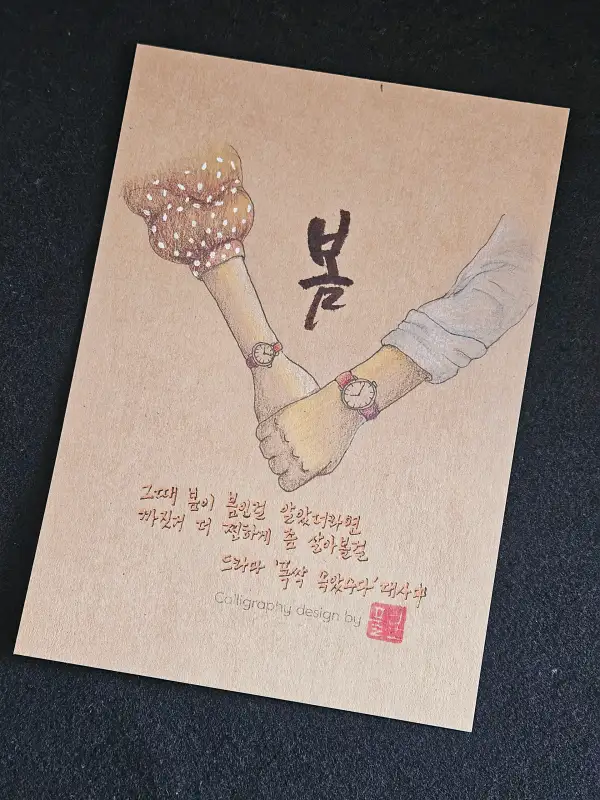 봄
그때 봄이 봄인걸 알았더라면
까짓거 더 찐하게 좀 살아볼걸
드라마 '폭싹 속았수다' 대사中
Calligraphy design by